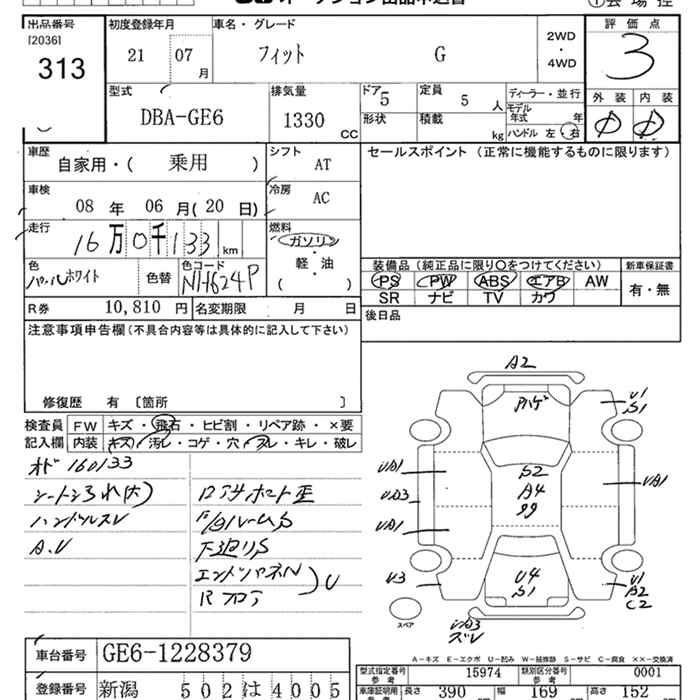 出品番号 初度登録年月 車名・グレード 評価点
[2036]
313 21 07月 フィット G 2WD・4WD 3
型式 排気量 ドア 定員 ディーラー・並行 外装 内装
DBA-GE6 1330cc 5 5人 モデル年式 年
形状 積載 kg ハンドル 左・右
車歴 シフト セールスポイント (正常に機能するものに限ります)
自家用・( 乗用 ) AT
車検 冷房
08年 06月(20日) AC
走行 燃料
16万0千133km ガソリン
軽・油
( )
色 色替 色コード 装備品 (純正品に限り〇をつけてください) 新車保証書
パールホワイト NH624P PS PW ABS エアB AW 有・無
SR ナビ TV カワ
R券 10,810円 名変期限 月 日 後日品
注意事項申告欄 (不具合内容等は具体的に記入して下さい)
修復歴 有 〔箇所 〕
検査員 FW キズ・飛石・ヒビ割・リペア跡・×要
記入欄 内装 キズ・汚レ・コゲ・穴・スレ・キレ・破レ
オド 160133
ハンドルスレ
A.U
下廻りS
エンドパネル U
Rフロア
A2
ハゲ
U1
S1
UA1
UD3
UA1
S2
A4
UA1
U3
U4
S1
U1
A2
C2
スペア
UD3
ズレ
車台番号 GE6-1228379
A-キズ E-エクボ U-凹み W-補修跡 S-サビ C-腐食 ××-交換済
型式指定番号 参考 15974 類別区分番号 参考 0001
登録番号 新潟 502 は 4005
車庫証明用 参考 長さ 390 幅 169 高さ 152